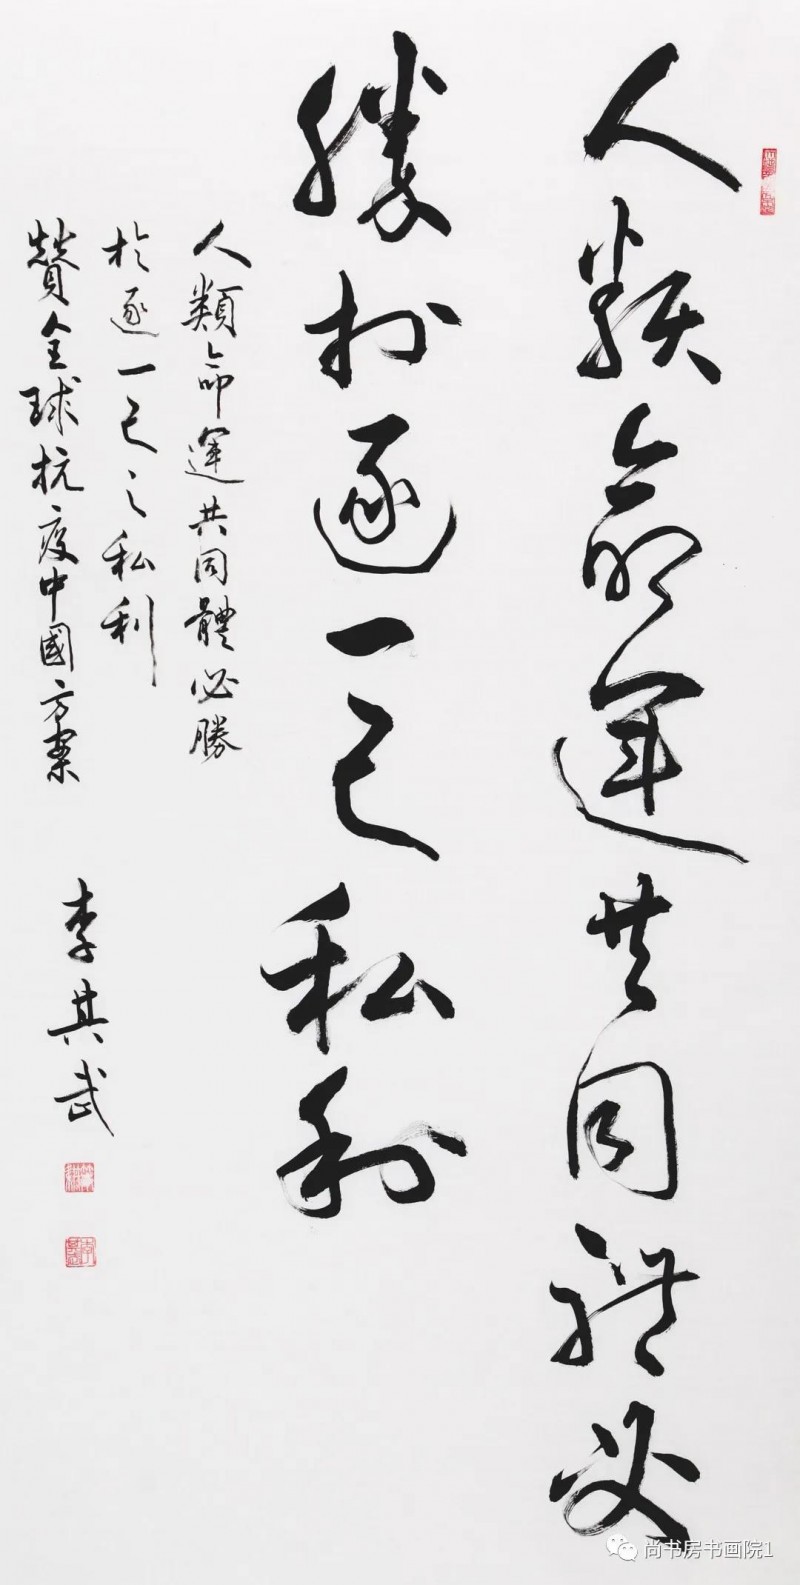 人類命運共同體必
勝於逐一己私利
人類命運共同體必勝
於逐一己之私利
贊全球抗疫中國方案
李其武
尚书房书画院1